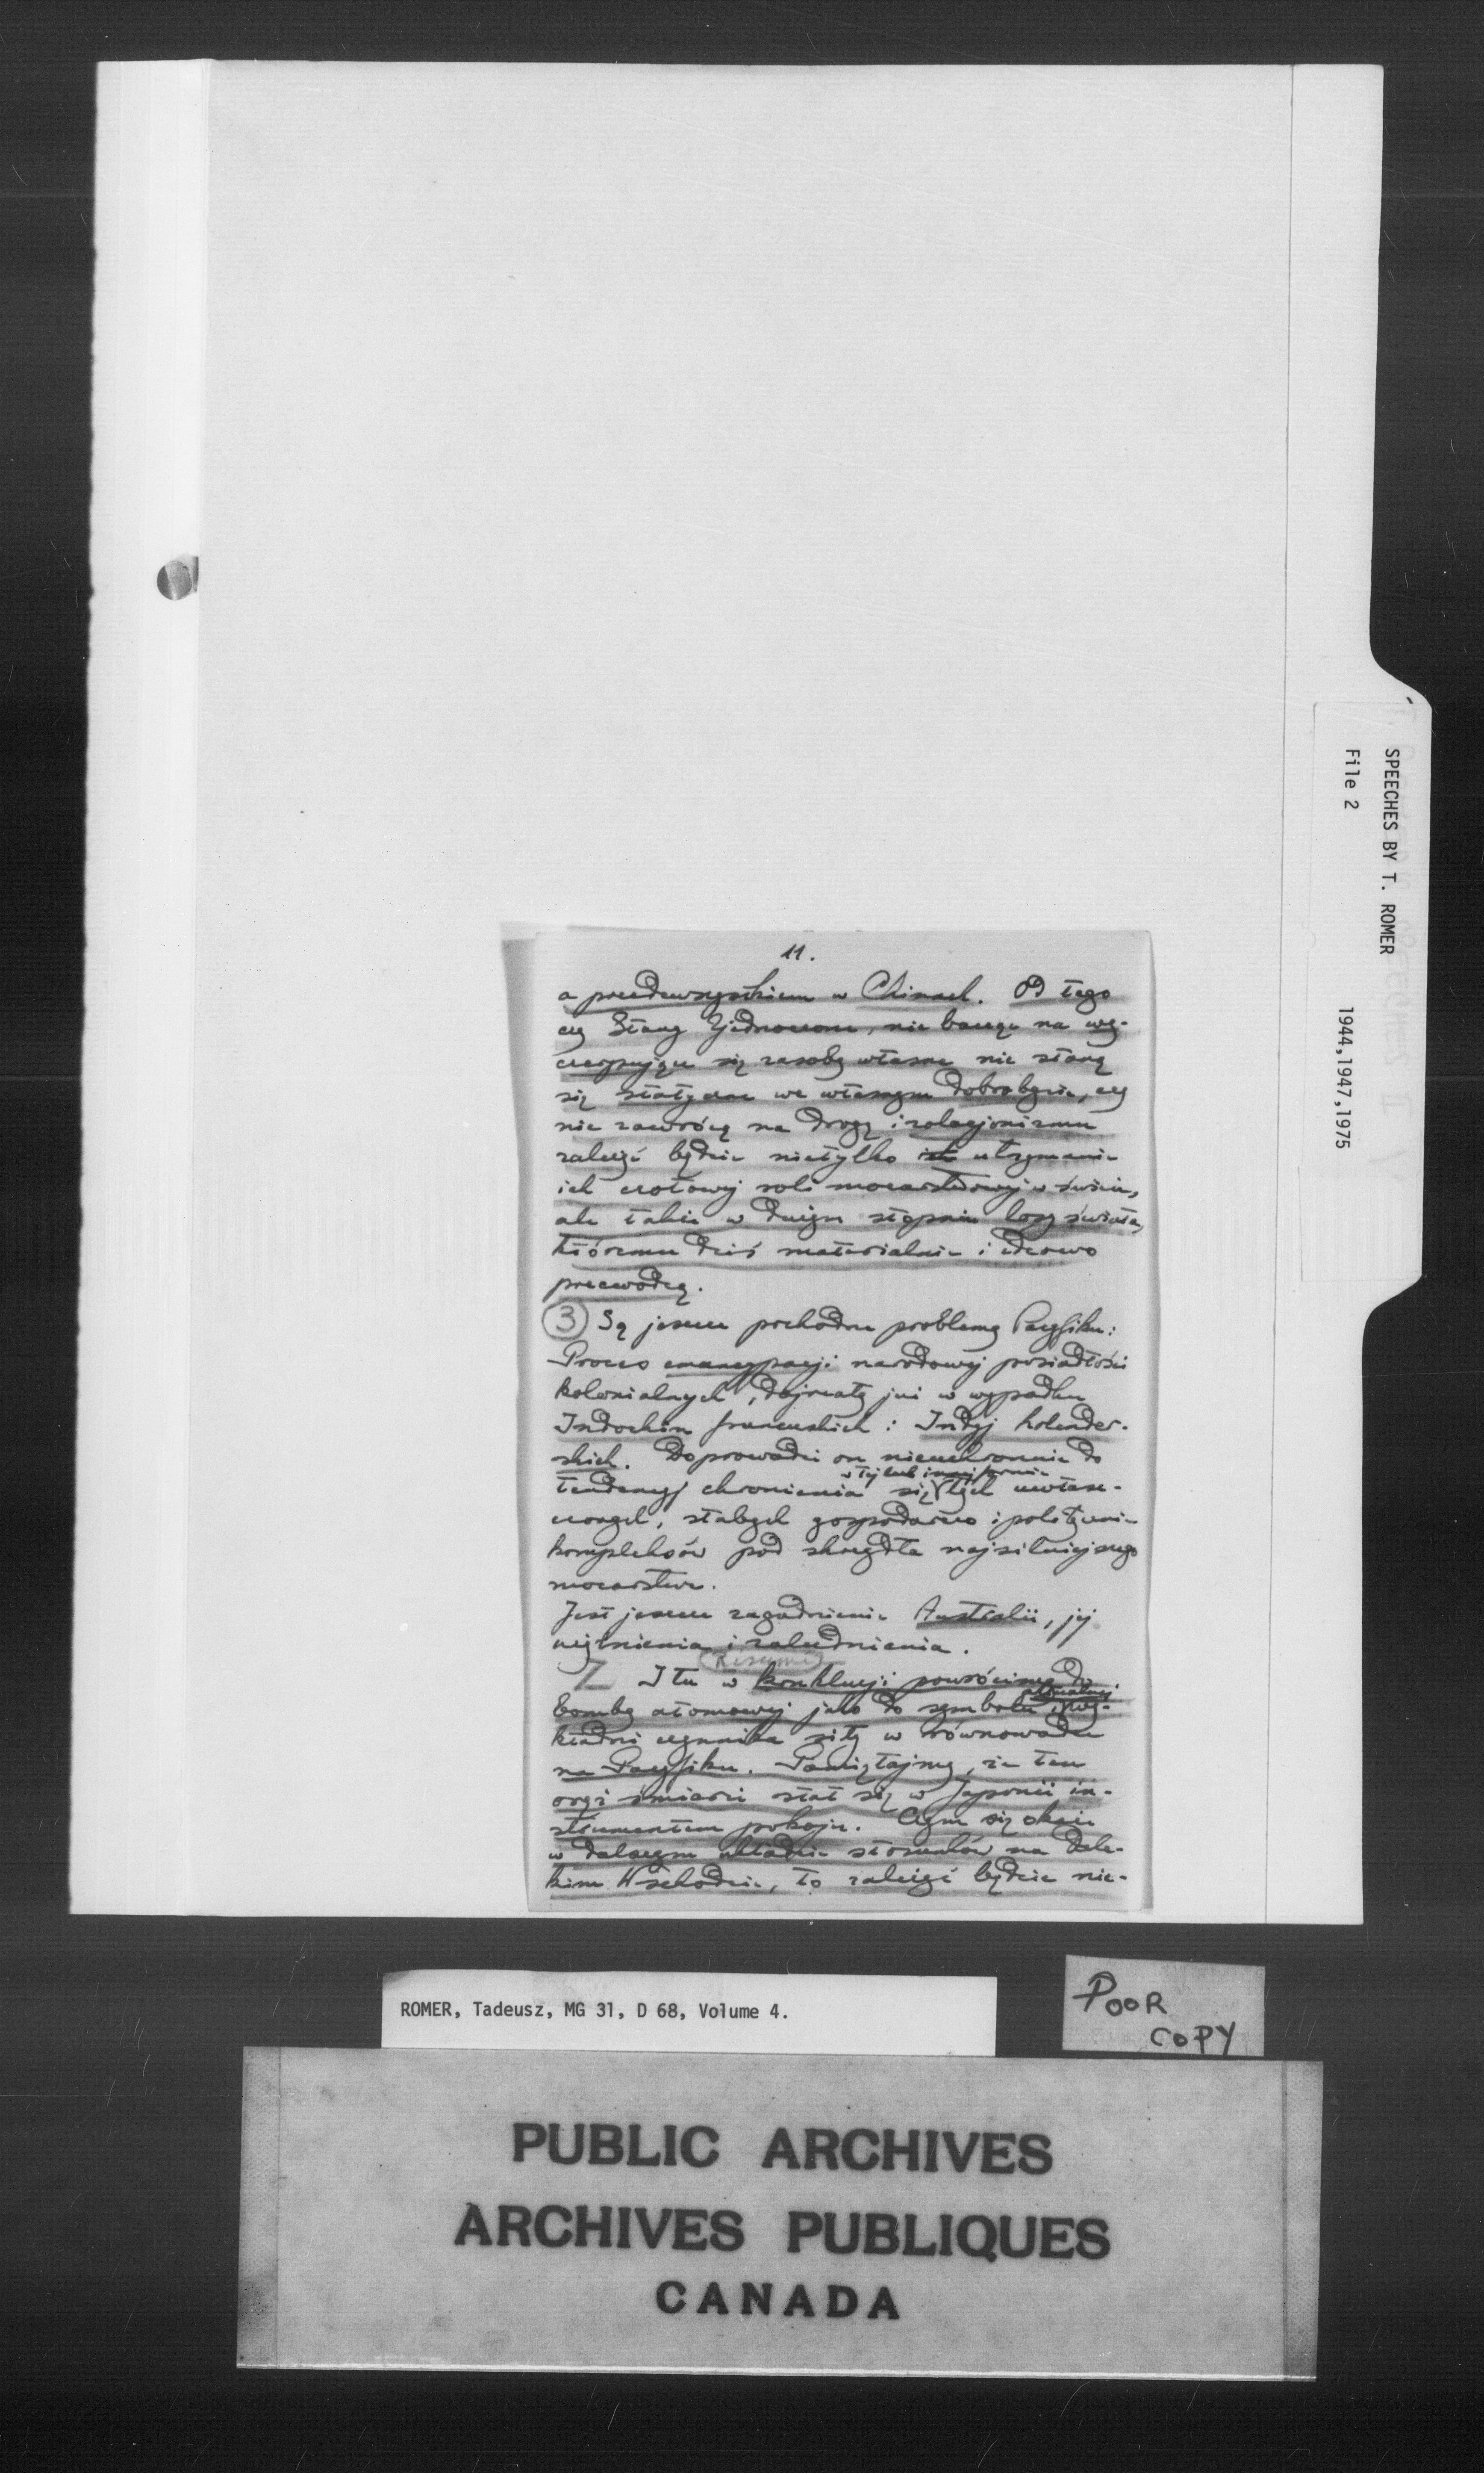 SPEECHES BY T. ROMER
File 2
1944,1947,1975
11.
a przedewszystkiem w Chinach. Od tego
czy Stany Zjednoczone, nie bacząc na wy-
czerpujące się zasoby własne nie staną
się statyczne we własnym dobrobycie, czy
nie zawrócą na drogę izolacjonizmu
zależeć będzie nietylko ich utrzymanie
ich czołowej roli mocarstwowej w świecie,
ale także w dużym stopniu losy świata,
któremu dziś materialnie i ideowo
przewodzą.
3 Są jeszcze pochodne problemy Pacyfiku:
Proces emancypacji narodowej posiadłości
kolonialnych, dojrzały już w wypadku
Indochin francuskich i Indyj holender-
skich. Doprowadzi on nieuchronnie do
w tej lub innej formie
tendencyj chronienia się tych uwłasz-
czonych, słabych gospodarczo i politycznie
kompleksów pod skrzydła najsilniejszego
mocarstwa.
Jest jeszcze zagadnienie Australii, jej
i zaludnienia.
Resumé
I tu w konkluzji powrócimy do
bomby atomowej jako do symbolu aktualnej wy-
kładni czynnika siły w równowadze
na Pacyfiku. Pamiętajmy, że ten
oręż śmierci stał się w Japonii in-
strumentem pokoju. Czym się okaże
w dalszym układzie stosunków na Dale-
kim Wschodzie, to zależeć będzie nie-
ROMER, Tadeusz, MG 31, D 68, Volume 4.
POOR
COPY
PUBLIC ARCHIVES
ARCHIVES PUBLIQUES
CANADA